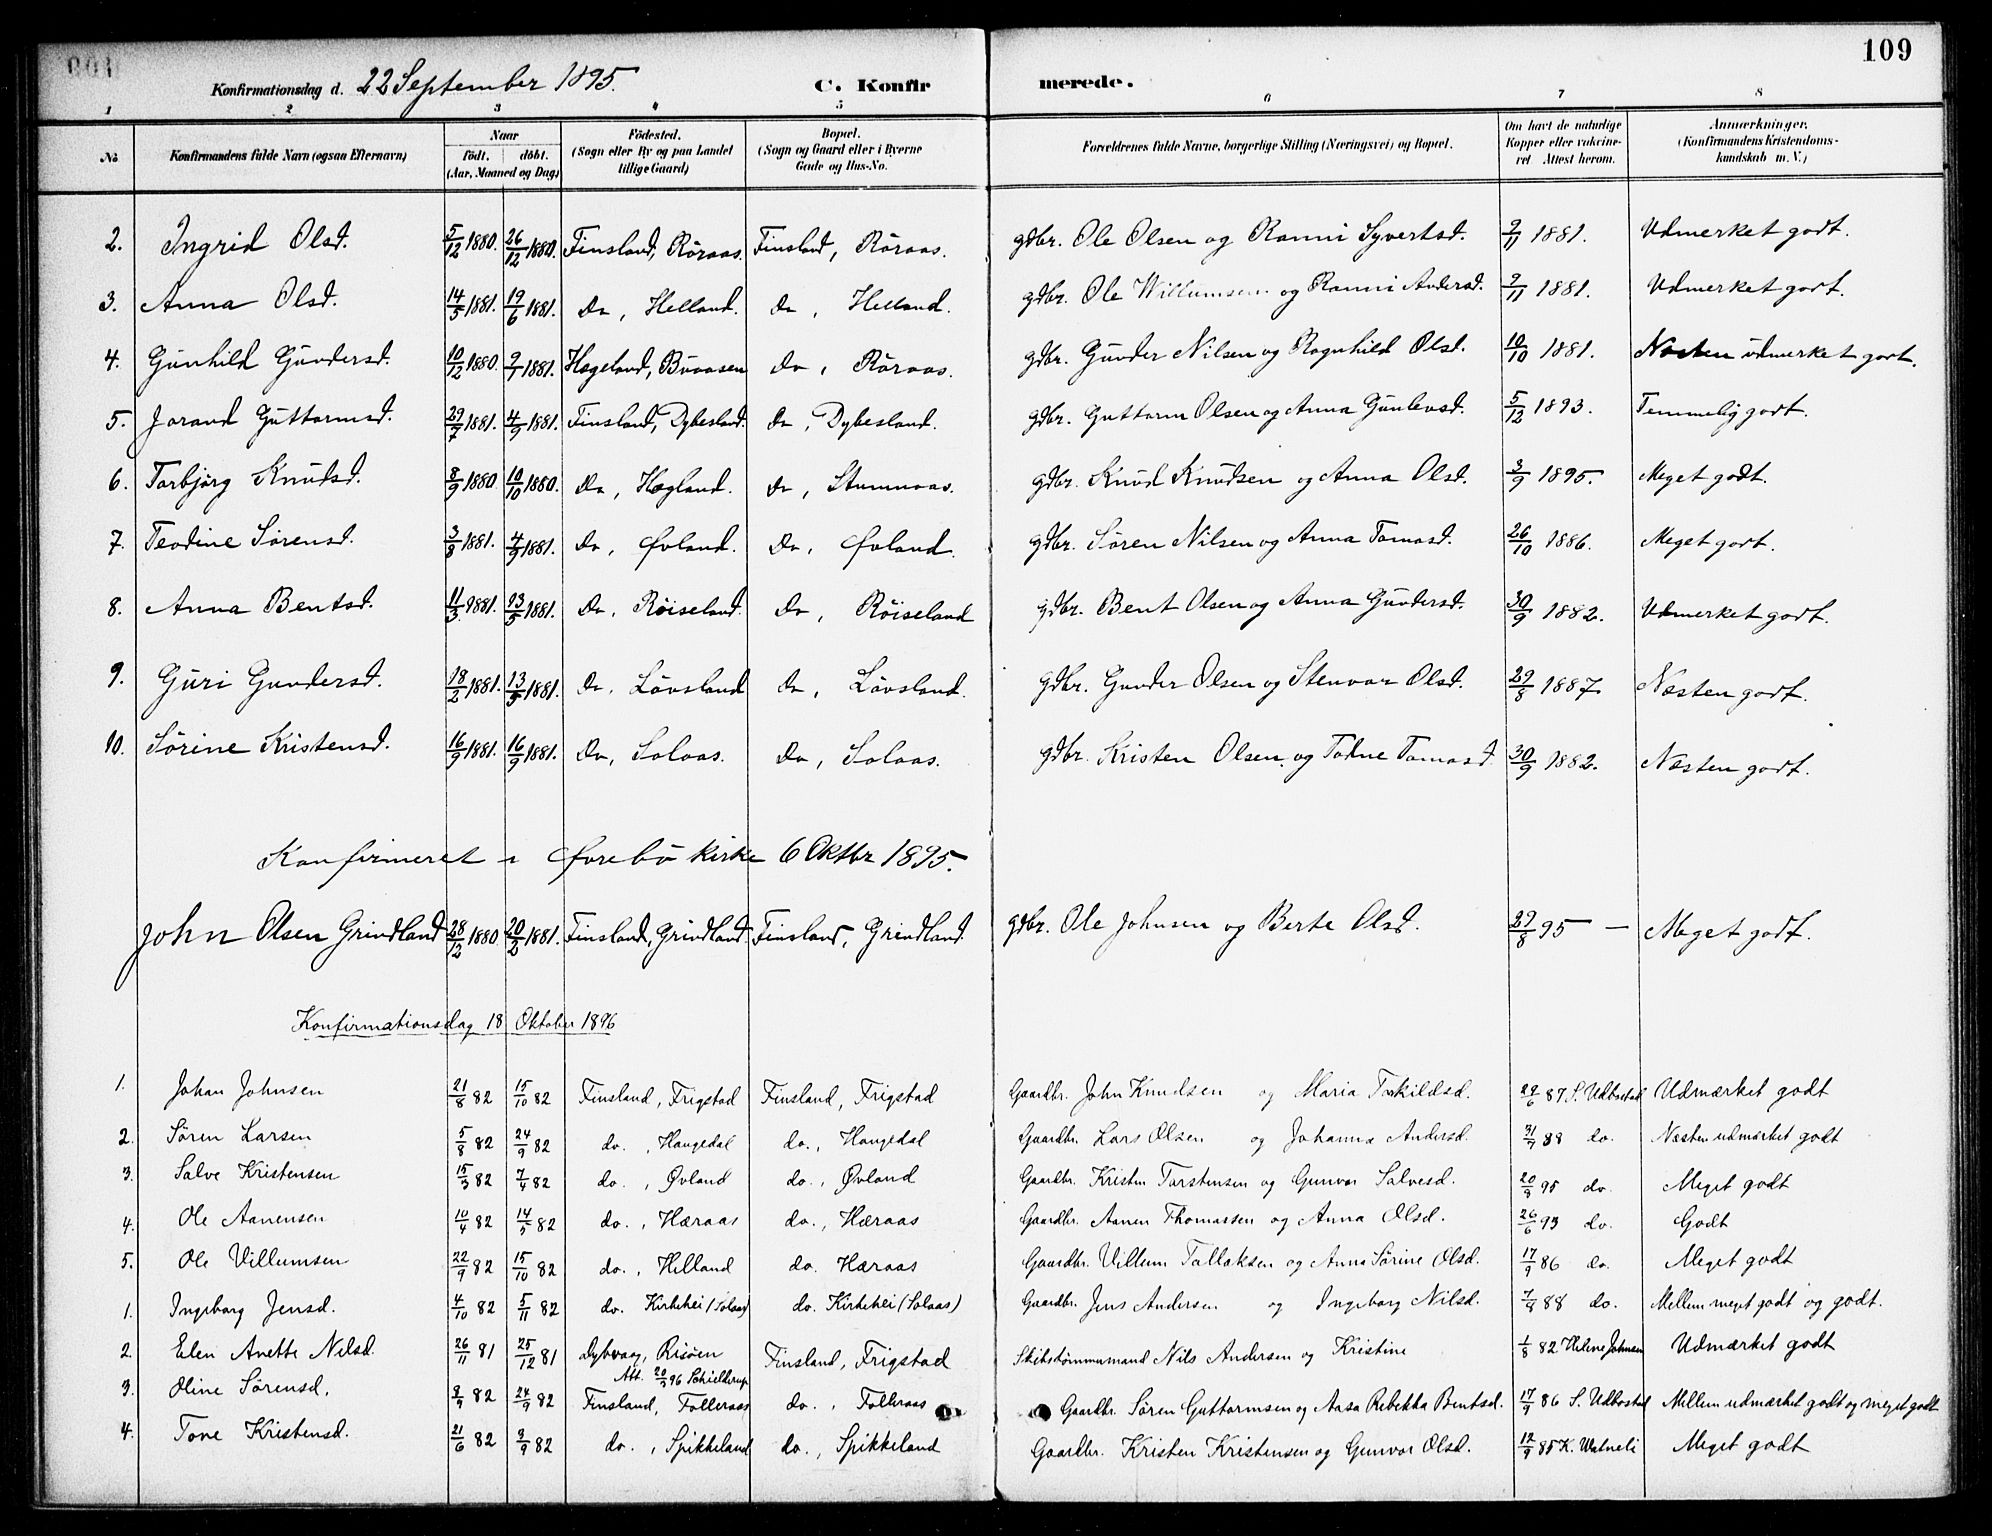 109
Konfirmationsdag d. 22 September 1895. C. Konfirmerede.
1 2 3 4 5 6 7 8
No Konfirmandens fulde Navn (ogsaa Efternavn) Naar födt. döbt. (Aar, Maaned og Dag) Födested. (Sogn eller By og paa Landet tillige Gaard) Bopæl. (Sogn og Gaard eller i Byerne Gade og Hus-No. Forældrenes fulde Navne, borgerlige Stilling (Næringsvei) og Bopæl. Om havt de naturlige Kopper eller vakcineret Attest herom. Anmærkninger. (Konfirmandens Kristendomskundskab m. V.)
2. Ingrid Olsd. 5/12 1880. 26/12 1880. Finsland, Röraas. Finsland, Röraas. gdbr. Ole Olsen og Ranni Syvertsd. 9/11 1881. Udmerket godt.
3. Anna Olsd. 14/5 1881. 19/6 1881. Do, Helland. Do, Helland. gdbr. Ole Willumsen og Ranni Andersd. 9/11 1881. Udmerket godt.
4. Gunhild Gundersd. 10/12 1880. 9/1 1881. Hægeland, Buaasen Do, Röraas. gdbr. Gunder Nilsen og Ragnhild Olsd. 10/10 1881. Næsten udmerket godt.
5. Jorand Guttormsd. 29/7 1881. 4/9 1881. Finsland, Dybesland. Do, Dybesland. gdbr. Guttorm Olsen og Anna Gunlevsd. 5/12 1893. Temmelig godt.
6. Torbjörg Knudsd. 8/9 1880. 10/10 1880. Do, Hægland. Do, Stumnaas. gdbr. Knud Knudsen og Anna Olsd. 3/9 1895. Meget godt.
7. Teodine Sörensd. 3/8 1881. 4/9 1881. Do, Øvland. Do, Øvland. gdbr. Sören Nilsen og Anna Tomasd. 26/10 1886. Meget godt.
8. Anna Bentsd. 11/3 1881. 23/5 1881. Do, Röiseland. Do, Röiseland gdbr. Bent Olsen og Anna Gundersd. 30/9 1882. Udmerket godt.
9. Guri Gundersd. 18/2 1881. 13/3 1881. Do, Lövsland Do, Lövsland. gdbr. Gunder Olsen og Stenvor Olsd. 29/8 1887. Næsten godt.
10. Sörine Kristensd. 16/9 1881. 16/9 1881. Do, Solaas. Do, Solaas. gdbr. Kristen Olsen og Tohne Tomasd. 30/9 1882. Næsten godt.
Konfirmeret i Øvrebö kirke 6 Oktbr 1895.
John Olsen Grindland 28/12 1880 20/2 1881. Finsland, Grindland. Finsland, Grindland. gdbr. Ole Johnsen og Berte Olsd. 27/8 95 — Meget godt.
Konfirmationsdag 18 Oktober 1896
1. Johan Johnsen 21/8 82 15/10 82 Finsland, Frigstad Finsland, Frigstad Gaardbr. John Knudsen og Maria Torkildsd. 29/6 87 S. Udbostad Udmærket godt
2. Sören Larsen 5/8 82 24/9 82 do., Haugedal do., Haugedal Gaardbr. Lars Olsen og Johanna Andersd. 31/7 88 do. Næsten udmærket godt
3. Salve Kristensen 15/3 82 7/4 82 do., Øvland do., Øvland Gaardbr. Kristen Torstensen og Gunvor Salvesd. 20/8 95 do. Meget godt
4. Ole Aanensen 10/4 82 14/5 82 do., Hæraas do., Hæraas Gaardbr. Aanen Thomassen og Anna Olsd. 26/6 93 do. Godt
5. Ole Villumsen 22/9 82 15/10 82 do., Helland do. Hæraas Gaardbr. Villum Tallaksen og Anna Sörine Olsd. 17/9 86 do. Meget godt
1. Ingeborg Jensd. 4/10 82 5/11 82 do. Kirkehei (Solaas) do. Kirkehei (Solaas) Gaardbr. Jens Andersen og Ingeborg Nilsd. 7/9 88 do. Mellem meget godt og godt.
2. Elen Anette Nilsd. 26/11 81 25/12 81 Dybvaag, Risöen Finsland, Frigstad Skibstömmermand Nils Andersen og Kristine 1/8 82 Helene Johnsen Udmærket godt
Att. 20/3 96 Schielderup
3. Oline Sörensd. 8/9 82 24/9 82 Finsland, Folleraas do., Folleraas Gaardbr. Sören Guttormsen og Aasa Rebekka Bentsd. 17/9 86 S. Udbostad Mellem udmærket godt og meget godt
4. Tone Kristensd. 21/6 82 3/9 82 do., Spikkeland do., Spikkeland Gaardbr. Kristen Kristensen og Gunvor Olsd. 12/9 85 K. Watneli Meget godt